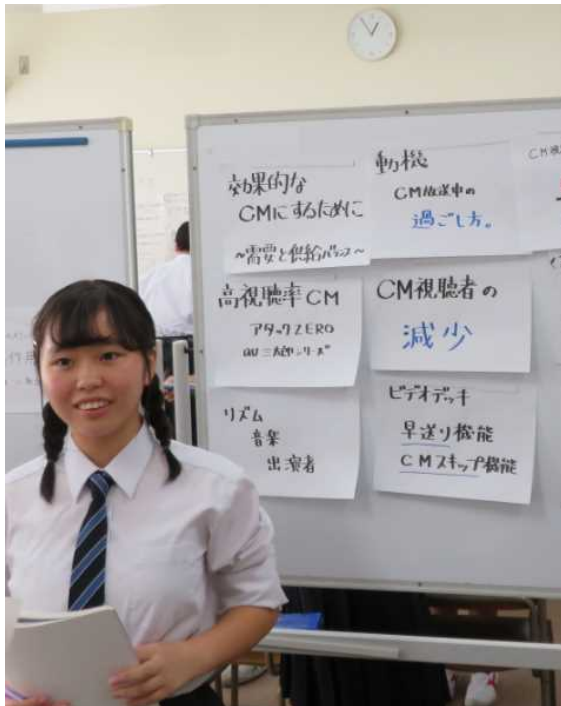 効果的な
CMにするために
~需要と供給バランス~
動機
CM放送中の
過ごし方。
高視聴率CM
アタックZERO
au三太郎シリーズ
CM視聴者の
減少
リズム
音楽
出演者
ビデオデッキ
早送り機能
CMスキップ機能
CM